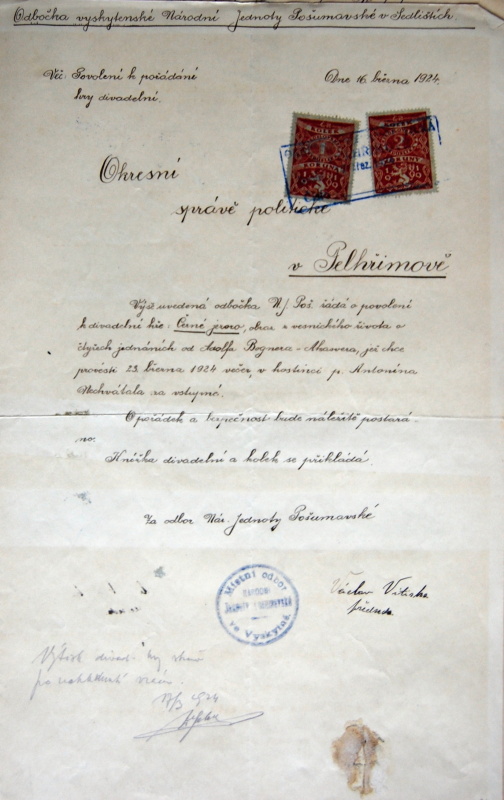 Odbočka vyskytenské Národní Jednoty Pošumavské v Sedlištích.
Věc: Povolení k pořádání
hry divadelní.
Dne 16. března 1924.
Okresní
správě politické
v Pelhřimově
Výše uvedená odbočka N. J. Poš. žádá o povolení
k divadelní hře: Černé jezero, obraz z vesnického života o
čtyřech jednáních od Adolfa Bognera-, již chce
provésti 23. března 1924 večer, v hostinci p. Antonína
Nechvátala za vstupné.
O pořádek a bezpečnost bude náležitě postará-
no.
Knížka divadelní a kolek se přikládá.
Za odbor Nár. Jednoty Pošumavské
Místní odbor
NÁRODNÍ
Jednoty Pošumavské
ve Vyskytné
Václav
předseda
Výtisk divad. hry
po
1924